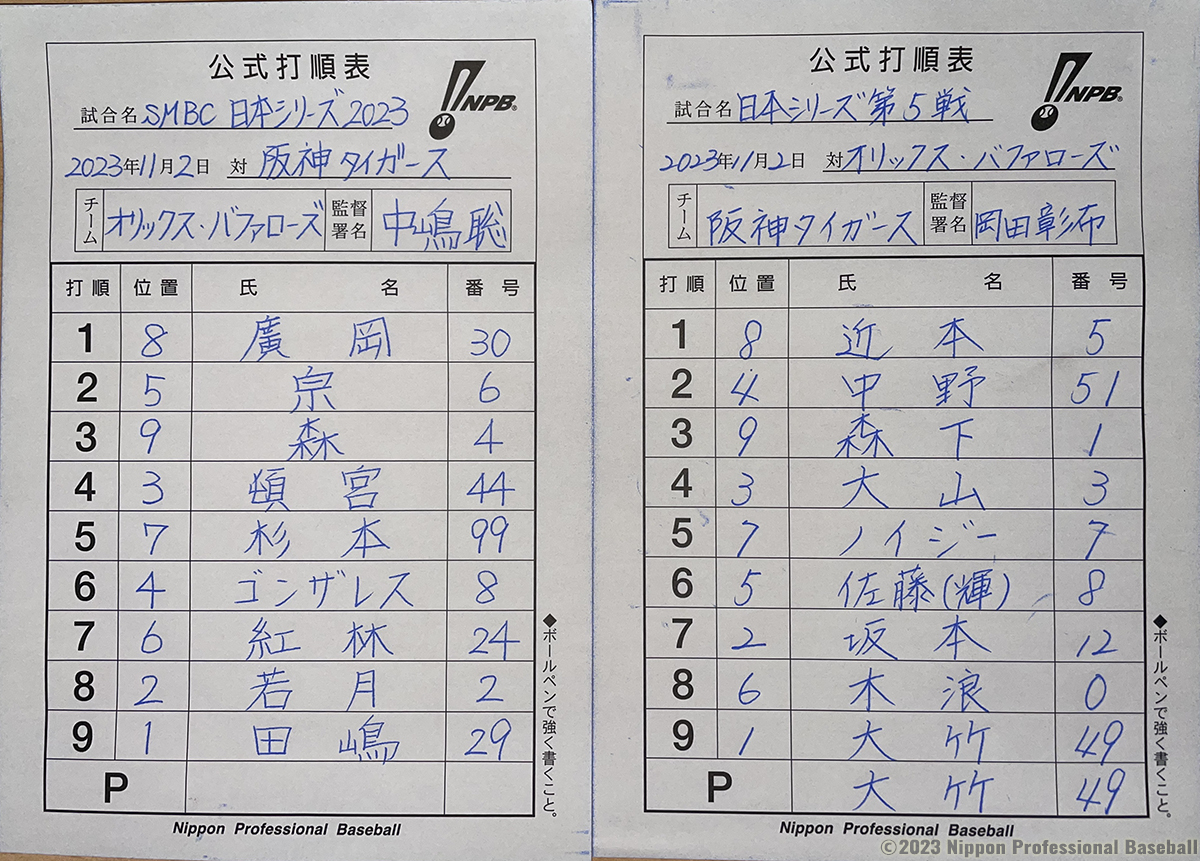 公式打順表
NPB
試合名 SMBC 日本シリーズ2023
2023年11月2日 対 阪神タイガース
チーム オリックス・バファローズ 監督署名 中嶋聡
打順 位置 氏名 番号
1 8 廣岡 30
2 5 宗 6
3 9 森 4
4 3 頓宮 44
5 7 杉本 99
6 4 ゴンザレス 8
7 6 紅林 24
8 2 若月 2
9 1 田嶋 29
P
◆ボールペンで強く書くこと。
Nippon Professional Baseball
公式打順表
NPB
試合名 日本シリーズ第5戦
2023年11月2日 対 オリックス・バファローズ
チーム 阪神タイガース 監督署名 岡田彰布
打順 位置 氏名 番号
1 8 近本 5
2 4 中野 51
3 9 森下 1
4 3 大山 3
5 7 ノイジー 7
6 5 佐藤(輝) 8
7 2 坂本 12
8 6 木浪 0
9 1 大竹 49
P 大竹 49
◆ボールペンで強く書くこと。
Nippon Professional Baseball
©2023 Nippon Professional Baseball